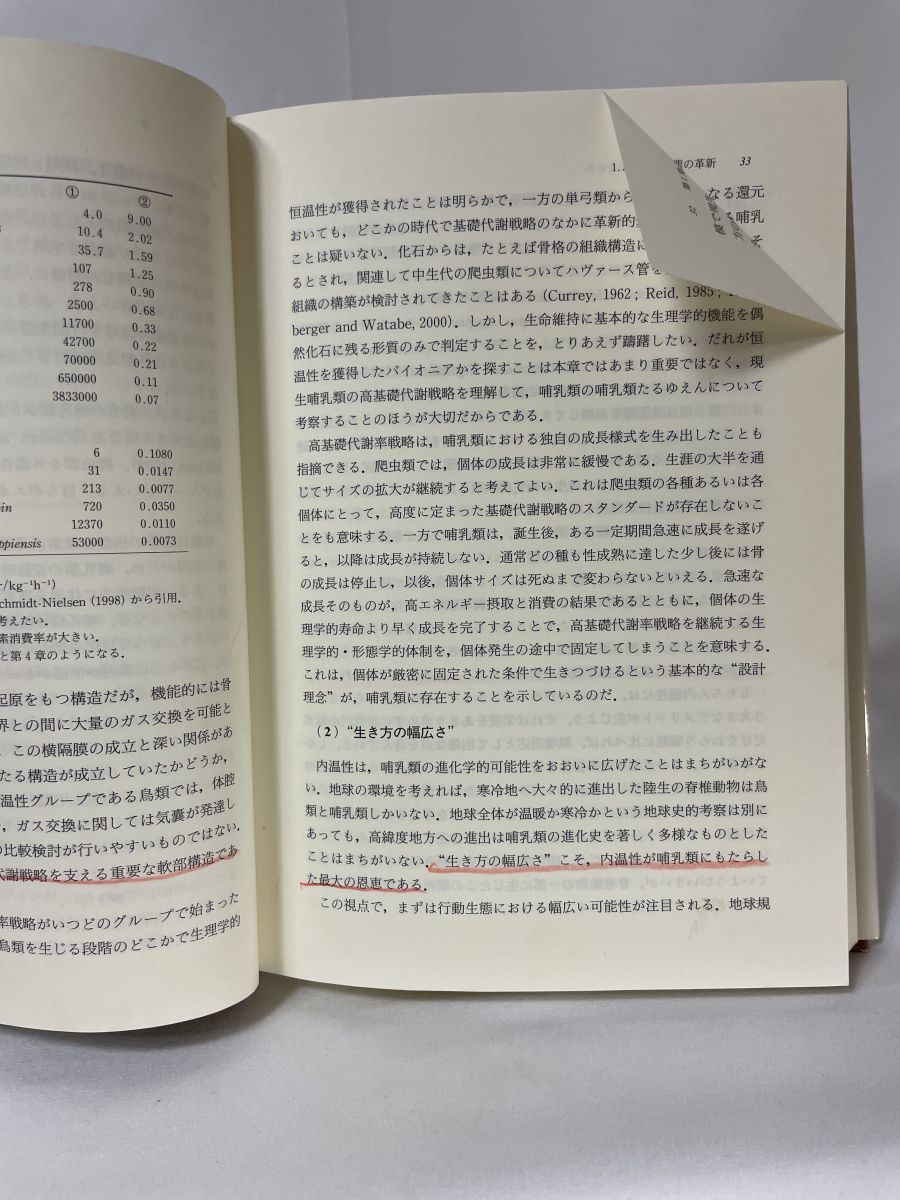 ① ②
4.0 9.00
10.4 2.02
35.7 1.59
107 1.25
278 0.90
2500 0.68
11700 0.33
42700 0.22
70000 0.21
650000 0.11
3833000 0.07
6 0.1080
31 0.0147
213 0.0077
pin 720 0.0350
12370 0.0110
ppiensis 53000 0.0073
r/kg⁻¹h⁻¹)
chmidt-Nielsen (1998) から引用.
考えたい.
素消費率が大きい.
と第4章のようになる.
起原をもつ構造だが，機能的には骨
界との間に大量のガス交換を可能と
この横隔膜の成立と深い関係があ
たる構造が成立していたかどうか，
温性グループである鳥類では，体腔
，ガス交換に関しては気嚢が発達し
の比較検討が行いやすいものではない．
代謝戦略を支える重要な軟部構造であ
率戦略がいつどのグループで始まった
鳥類を生じる段階のどこかで生理学的
1. 態の革新 33
恒温性が獲得されたことは明らかで，一方の単弓類から なる還元
おいても，どこかの時代で基礎代謝戦略のなかに革新的 哺乳
ことは疑いない．化石からは，たとえば骨格の組織構造に そ
るとされ，関連して中生代の爬虫類についてハヴァース管を
組織の構築が検討されてきたことはある (Currey, 1962 ; Reid, 1985 ;
berger and Watabe, 2000)．しかし，生命維持に基本的な生理学的機能を偶
然化石に残る形質のみで判定することを，とりあえず躊躇したい．だれが恒
温性を獲得したパイオニアかを探すことは本章ではあまり重要ではなく，現
生哺乳類の高基礎代謝戦略を理解して，哺乳類の哺乳類たるゆえんについて
考察することのほうが大切だからである．
高基礎代謝率戦略は，哺乳類における独自の成長様式を生み出したことも
指摘できる．爬虫類では，個体の成長は非常に緩慢である．生涯の大半を通
じてサイズの拡大が継続すると考えてよい．これは爬虫類の各種あるいは各
個体にとって，高度に定まった基礎代謝戦略のスタンダードが存在しないこ
とをも意味する．一方で哺乳類は，誕生後，ある一定期間急速に成長を遂げ
ると，以降は成長が持続しない．通常どの種も性成熟に達した少し後には骨
の成長は停止し，以後，個体サイズは死ぬまで変わらないといえる．急速な
成長そのものが，高エネルギー摂取と消費の結果であるとともに，個体の生
理学的寿命より早く成長を完了することで，高基礎代謝率戦略を継続する生
理学的・形態学的体制を，個体発生の途中で固定してしまうことを意味する．
これは，個体が厳密に固定された条件で生きつづけるという基本的な“設計
理念”が，哺乳類に存在することを示しているのだ．
（2）“生き方の幅広さ”
内温性は，哺乳類の進化学的可能性をおおいに広げたことはまちがいがな
い．地球の環境を考えれば，寒冷地へ大々的に進出した陸生の脊椎動物は鳥
類と哺乳類しかいない．地球全体が温暖か寒冷かという地球史的考察は別に
あっても，高緯度地方への進出は哺乳類の進化史を著しく多様なものとした
ことはまちがいない．“生き方の幅広さ”こそ，内温性が哺乳類にもたらし
た最大の恩恵である．
この視点で，まずは行動生態における幅広い可能性が注目される．地球規